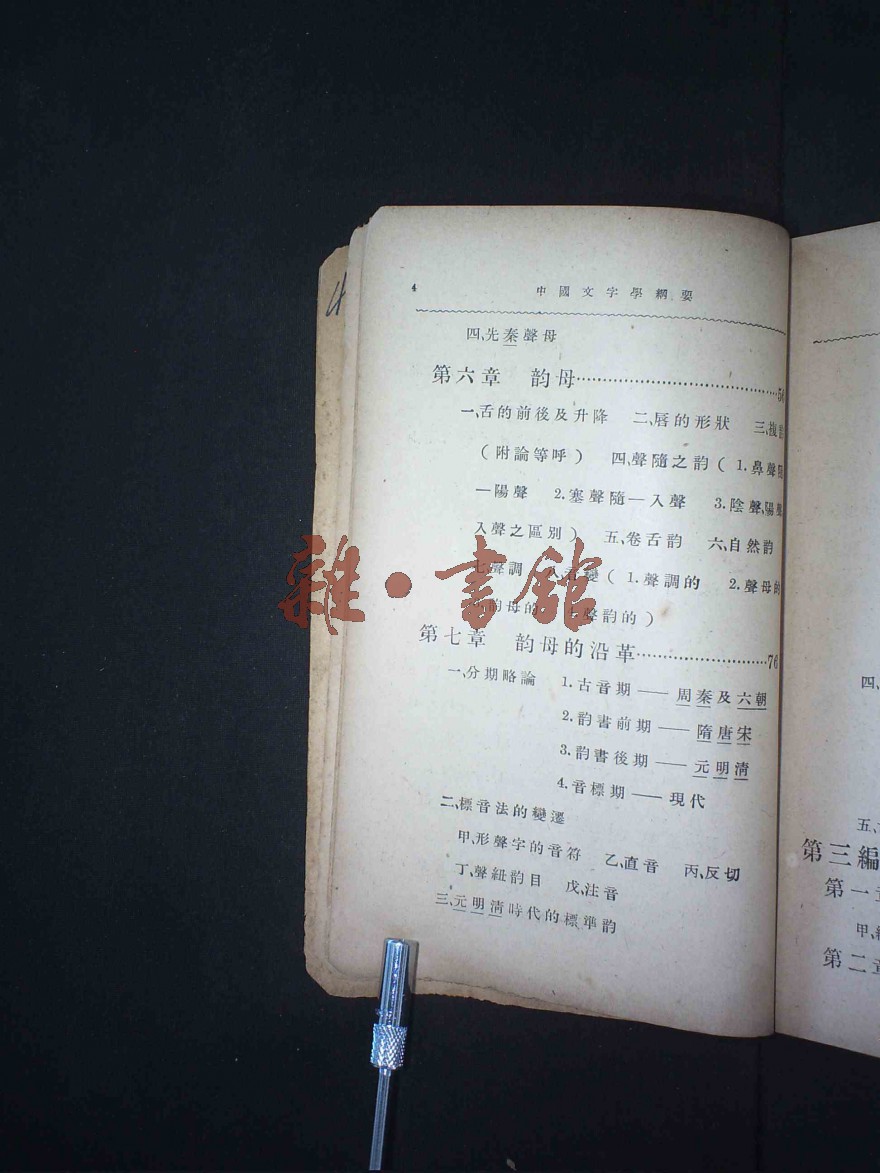 4 中國文字學綱要
四、先秦聲母
第六章 韵母
一、舌的前後及升降 二、唇的形狀 三、複
(附論等呼) 四、聲隨之韵(1.鼻聲
—陽聲 2.塞聲隨—入聲 3.陰聲,陽
入聲之區別) 五、卷舌韵 六、自然韵
七、聲調 八、音變(1.聲調的 2.聲母的
韵母的 聲韵的)
第七章 韵母的沿革 76
一、分期略論 1.古音期——周秦及六朝
2.韵書前期——隋唐宋
3.韵書後期——元明清
4.音標期——現代
二、標音法的變遷
甲、形聲字的音符 乙、直音 丙、反切
丁、聲紐韵目 戊、注音
三、元明清時代的標準韵
雜·書館
4
四、
五、
第三編
第一
甲、
第二